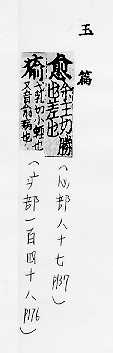 玉篇
愈 余主切勝
也差也
(心部八十七 P137)
瘉 弋乳切小輕也
又音俞病也
(疒部一百四十八 P176)